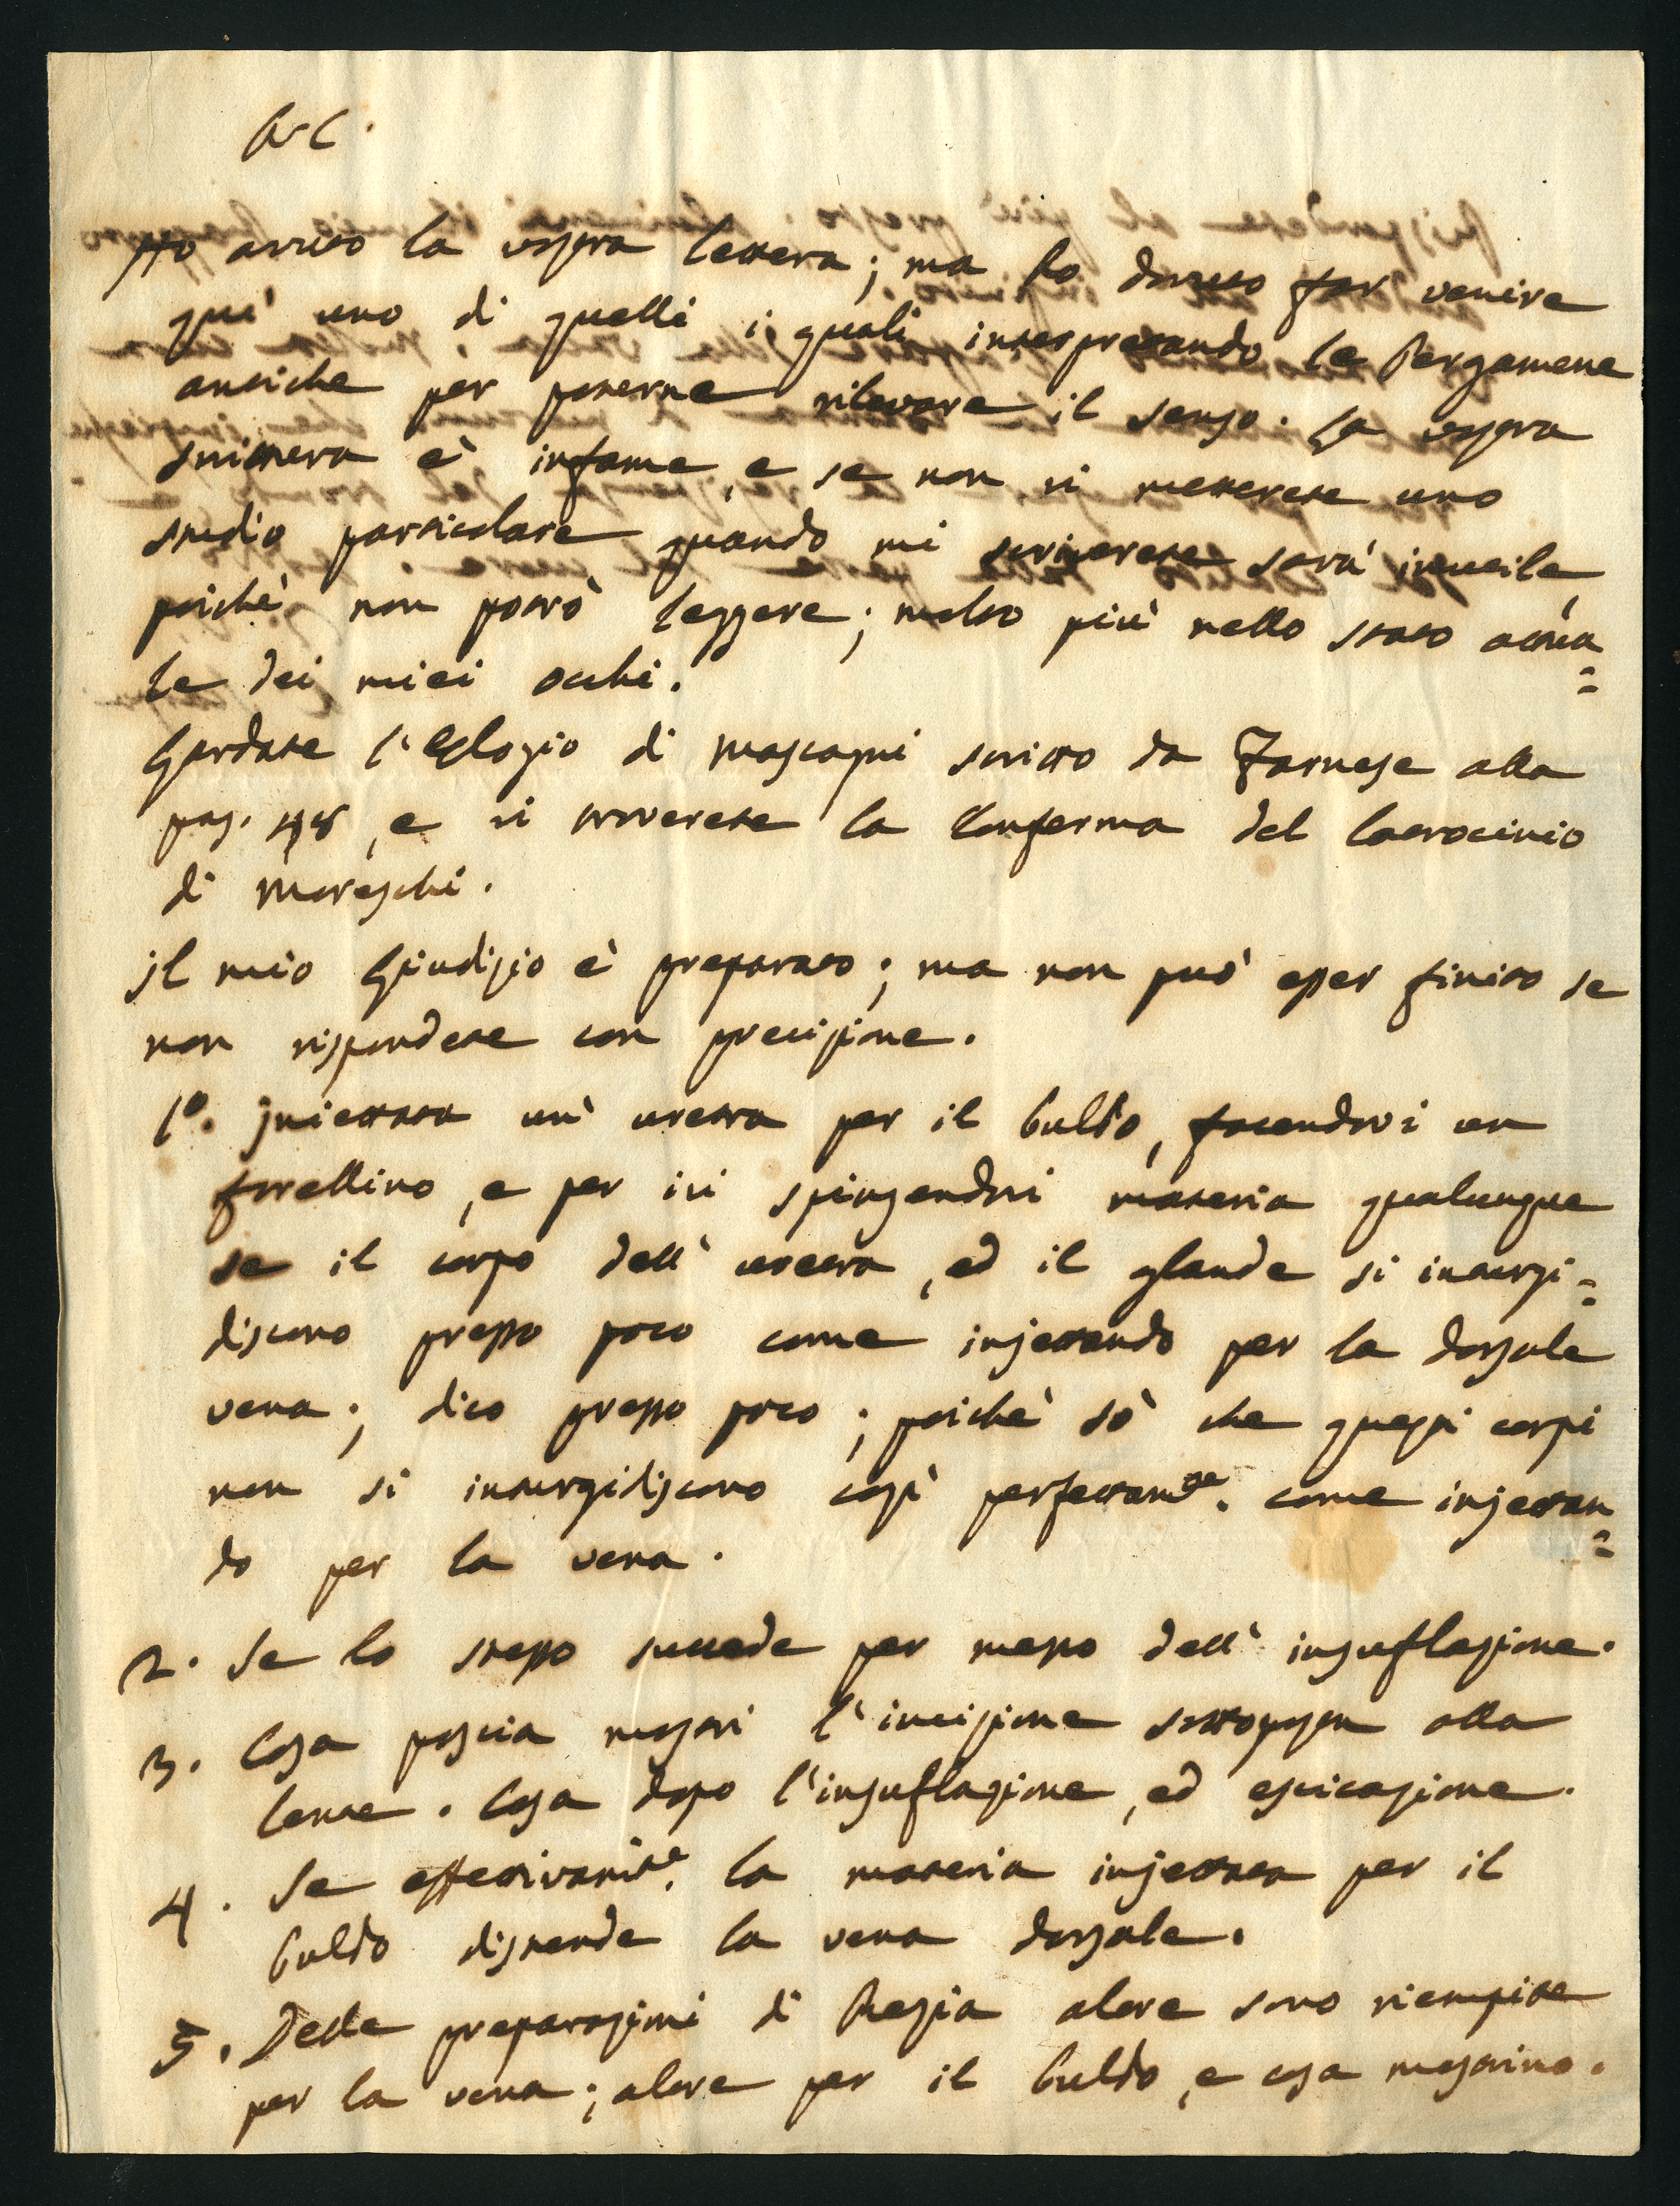 A. C.
Ho avuto la vostra lettera; ma ho dovuto far venire
quì uno di quelli i quali interpretando le Pergamene
antiche per poterne rilevare il senso. La vostra
scrittura è infame, e se non vi metterete uno
studio particolare quando mi scriverete sarà inutile,
poichè non potrò leggere; molto più nello stato attua=
le dei miei occhi.
Guardate l'Elogio di Mascagni scritto da Farnese alla
pag. 48, e vi troverete la Conferma del latrocinio
di Moreschi.
Il mio Giudizio è preparato; ma non può esser finito se
non rispondete con precisione.
1º. Iniettata un' uretra per il bulbo, facendovi un
forellino, e per ivi spingendovi materia qualunque
se il corpo dell' uretra, ed il glande si inturgi=
discono presso poco come injettando per la dorsale
vena; dico presso poco; poichè sò che questi corpi
non si inturgidiscono così perfettamte. come injettan=
do per la vena.
2. Se lo stesso succede per mezzo dell' insuflazione.
3. Cosa poscia mostri l'incisione sottoposta alla
lente. Cosa dopo l'insuflazione, ed essicazione.
4. Se effettivamte. la materia injettata per il
bulbo distende la vena dorsale.
5. Delle preparazioni di Pavia altre sono riempite
per la vena; altre per il bulbo, e cosa mostrino.